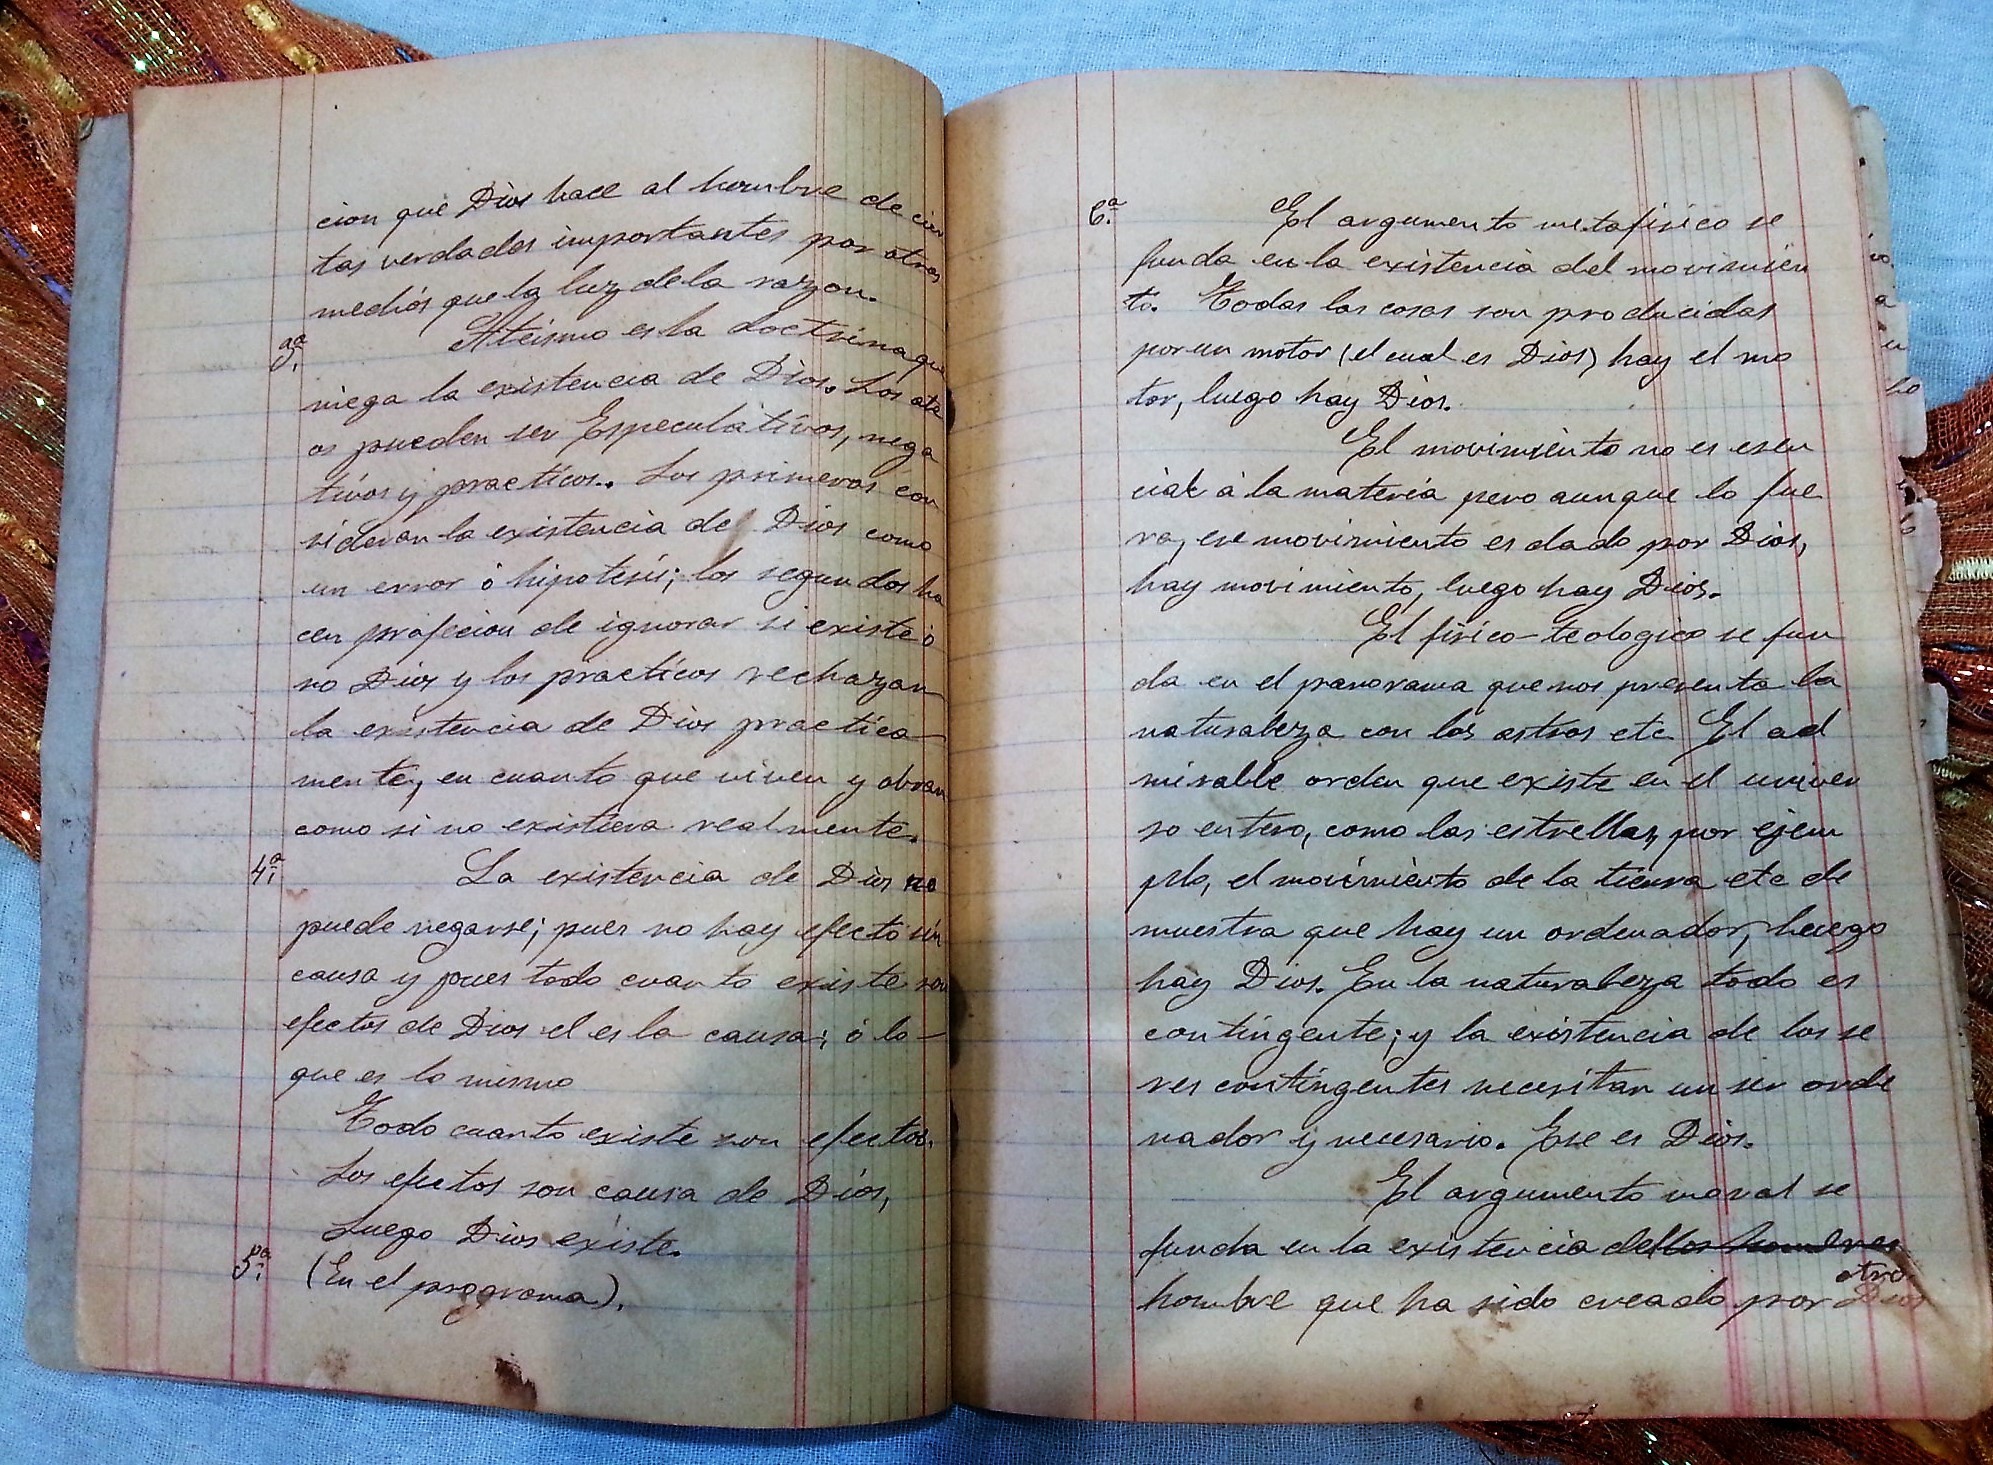 cion que Dios hace al hombre de cier
tas verdades importantes por otros
medios que la luz de la razon.
3ª. Ateismo es la doctrina que
niega la existencia de Dios. Los ate
os pueden ser Especulativos, nega
tivos y practicos. Los primeros con
sideran la existencia de Dios como
un error ó hipotesis; los segundos ha
cen profecion de ignorar si existe ó
no Dios y los practicos rechazan
la existencia de Dios practica
mente, en cuanto que viven y obran
como si no existiera realmente.
4ª. La existencia de Dios no
puede negarse; pues no hay efecto sin
causa y pues todo cuanto existe son
efectos de Dios el es la causa; ó lo-
que es lo mismo
Todo cuanto existe son efectos.
Los efectos son causa de Dios,
Luego Dios existe.
5ª. (En el programa).
6ª. El argumento metafisico se
funda en la existencia del movimien
to. Todas las cosas son producidas
por un motor (el cual es Dios) hay el mo
tor, luego hay Dios.
El movimiento no es esen
cial á la materia pero aunque lo fue
ra, ese movimiento es dado por Dios,
hay movimiento, luego hay Dios.
El fisico-teologico se fun
da en el panorama que nos presenta la
naturaleza con los astros etc El ad
mirable orden que existe en el univer
so entero, como las estrellas, por ejem
plo, el movimiento de la tierra etc de
muestra que hay un ordenador, luego
hay Dios. En la naturaleza todo es
contingente; y la existencia de los se
res contingentes necesitan un ser orde
nador y necesario. Ese es Dios.
El argumento moral se
funda en la existencia del los hombres
otro
hombre que ha sido creado por Dios